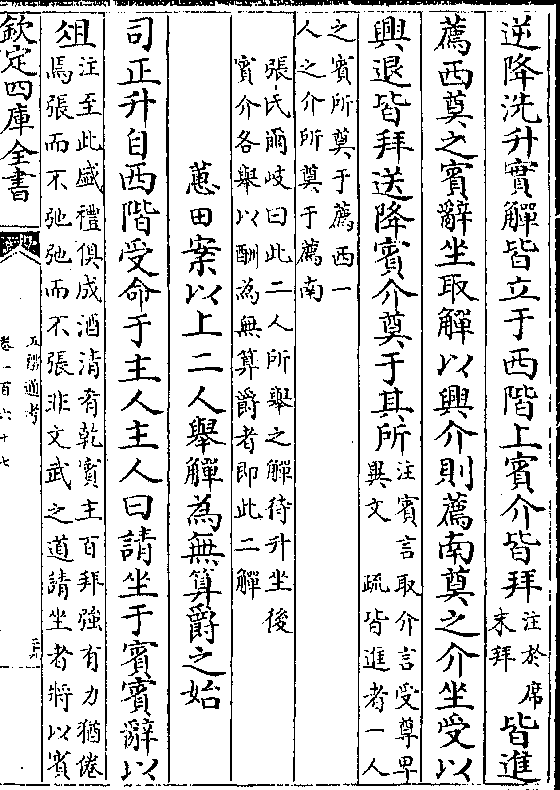 逆降洗升實觶皆立于西階上賓介皆拜注於席末拜皆進
薦西奠之賓辭坐取觶以興介則薦南奠之介坐受以
興退皆拜送降賓介奠于其所注賓言取介言受尊卑異文 疏皆進者一人
之賓所奠于薦西一人之介所奠于薦南
張氏爾岐曰此二人所舉之觶待升坐後賓介各舉以酬為無算爵者即此二觶
蕙田案以上二人舉觶為無算爵之始
司正升自西階受命于主人主人曰請坐于賓賓辭以
俎注至此盛禮俱成酒清肴乾賓主百拜強有力猶倦焉張而不弛弛而不張非文武之道請坐者將以賓
欽定四庫全書
五禮通考
卷一百六十七